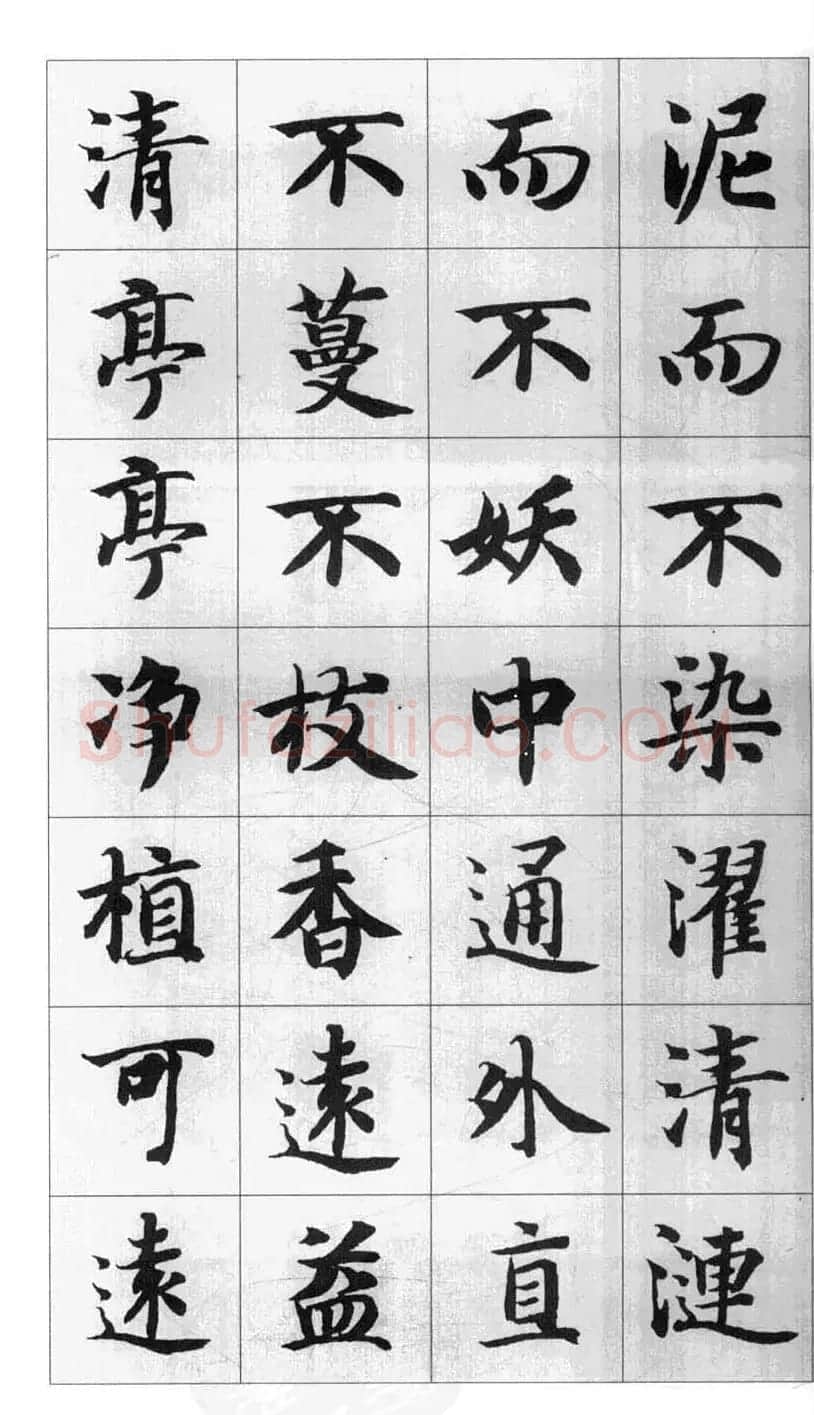 泥而不染濯清漣
而不妖中通外直
不蔓不枝香遠益
清亭亭净植可遠
Shufaziliao.COM